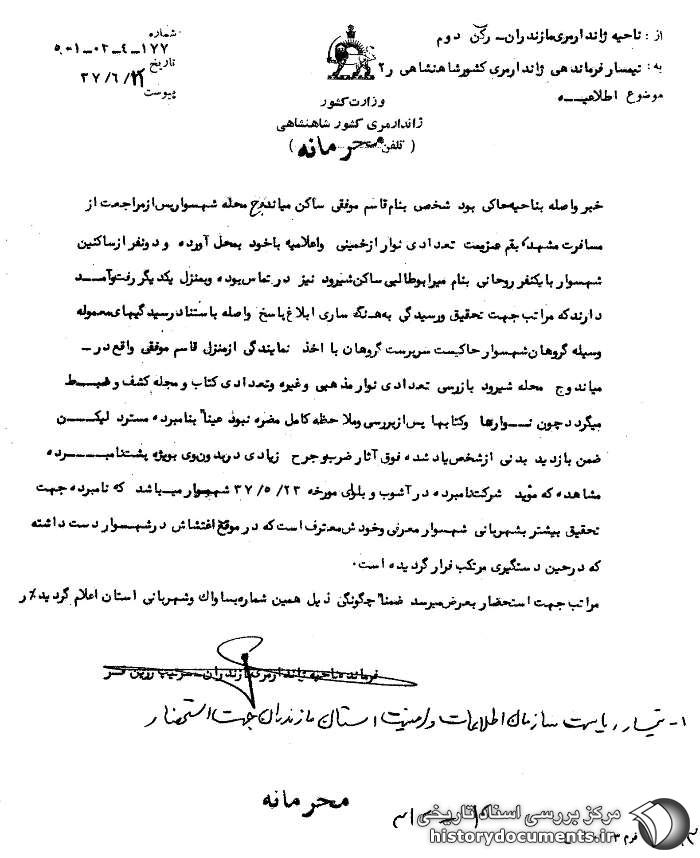 از : ناحیه ژاندارمری مازندران - رکن دوم
به : تیمسار فرماندهی ژاندارمری کشور شاهنشاهی ر۲
موضوع اطلاعیه
شماره
۵۰۱-۰۲-۴-۱۷۷
تاریخ
۳۷/۶/
پیوست
وزارت کشور
ژاندارمری کشور شاهنشاهی
( تلفن )
محرمانه
خبر واصله بناحیه حاکی بود شخص بنام قاسم موفقی ساکن میاندج محله شهسوار پس از مراجعت از
مسافرت مشهد، بقم عزیمت تعدادی نوار از خمینی واعلامیه باخود بمحل آورده و دونفر از ساکنین
شهسوار با یکنفر روحانی بنام میرابوطالبی ساکن شیرود نیز در تماس بوده وبمنزل یکدیگر رفت وآمد
دارند که مراتب جهت تحقیق ورسیدگی به هنگ ساری ابلاغ پاسخ واصله باستناد رسیدگیهای معموله
وسیله گروهان شهسوار حاکیست سرپرست گروهان با اخذ نمایندگی از منزل قاسم موفقی واقع در -
میاندوج محله شیرود بازرسی تعدادی نوار مذهبی وغیره وتعدادی کتاب و مجله کشف و ضبط
میگردد چون نوارها وکتابها پس از بررسی وملاحظه کامل مضره نبود عینا" بنامبرده مسترد لیکن
ضمن بازدید بدنی از شخص یاد شده فوق آثار ضرب و جرح زیادی در بدن وی بویژه پشت نامبرده
مشاهده که موید شرکت نامبرده در آشوب و بلوای مورخه ۳۷/۵/۲۳ شهسوار میباشد که نامبرده جهت
تحقیق بیشتر بشهربانی شهسوار معرفی وخودش معترف است که در موقع اغتشاش در شهسوار دست داشته
که در حین دستگیری مرتکب فرار گردیده است.
مراتب جهت استحضار بعرض میرسد ضمنا" چگونگی ذیل همین شماره بساواک وشهربانی استان اعلام گردید٪ ر
فرمانده ناحیه ژاندارمری مازندران - سرتیپ
۱- تیمسار ریاست سازمان اطلاعات و امنیت استان مازندران جهت استحضار
محرمانه
مرکز بررسی اسناد تاریخی
historydocuments.ir
فرم ۳